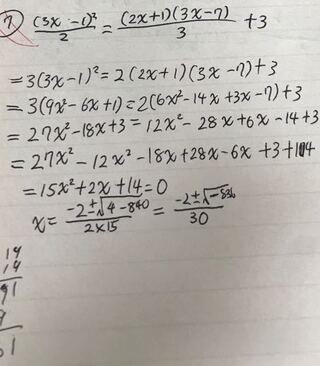 7 (3x-1)²/2 = (2x+1)(3x-7)/3 + 3
= 3(3x-1)² = 2(2x+1)(3x-7)+3
= 3(9x²-6x+1) = 2(6x²-14x+3x-7)+3
= 27x²-18x+3 = 12x²-28x+6x-14+3
= 27x²-12x²-18x+28x-6x+3+14
= 15x²+2x+14=0
x = -2±√4-840/2×15 = -2±√-836/30
14
14